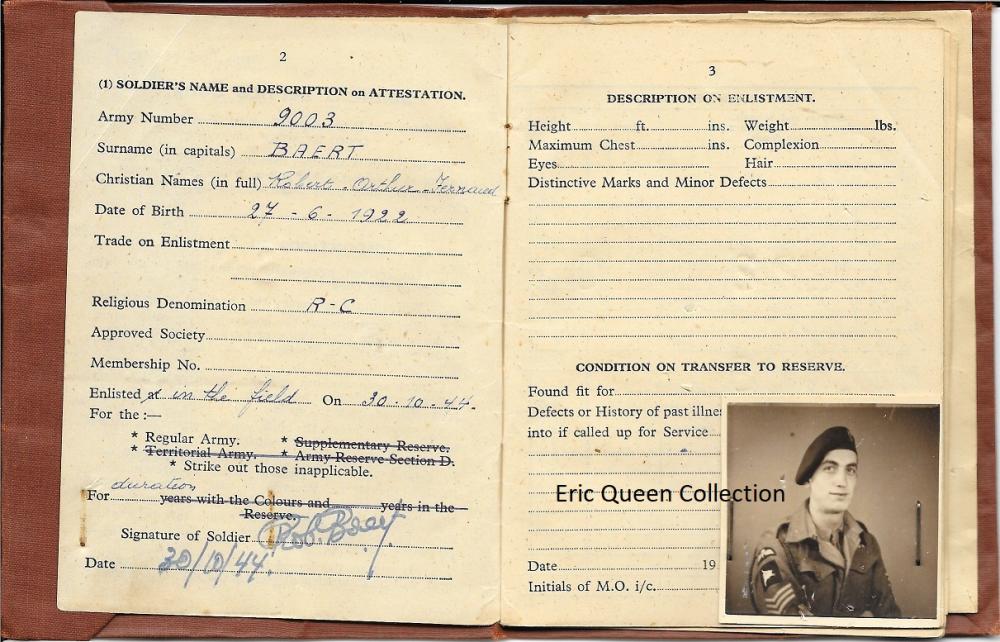 2
(1) SOLDIER'S NAME and DESCRIPTION on ATTESTATION.
Army Number 9003
Surname (in capitals) BAERT
Christian Names (in full) Robert - Arthur - Fernand
Date of Birth 27 - 6 - 1922
Trade on Enlistment
Religious Denomination R-C
Approved Society
Membership No.
Enlisted at in the field On 30-10-44.
For the :—
* Regular Army. * Supplementary Reserve.
* Territorial Army. * Army Reserve Section D.
* Strike out those inapplicable.
duration
For years with the Colours and years in the
Reserve.
Signature of Soldier Rob. Baert
Date 30/10/44.
3
DESCRIPTION ON ENLISTMENT.
Height ft. ins. Weight lbs.
Maximum Chest ins. Complexion
Eyes Hair
Distinctive Marks and Minor Defects
CONDITION ON TRANSFER TO RESERVE.
Found fit for
Defects or History of past illnes
into if called up for Service
Eric Queen Collection
Date 19
Initials of M.O. i/c.